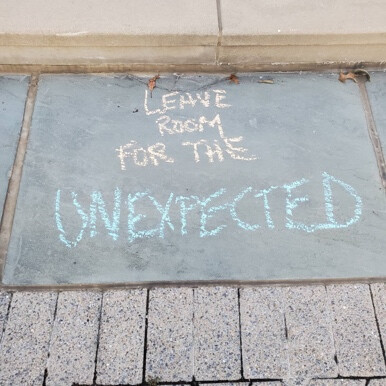 LEAVE
ROOM
FOR THE
UNEXPECTED